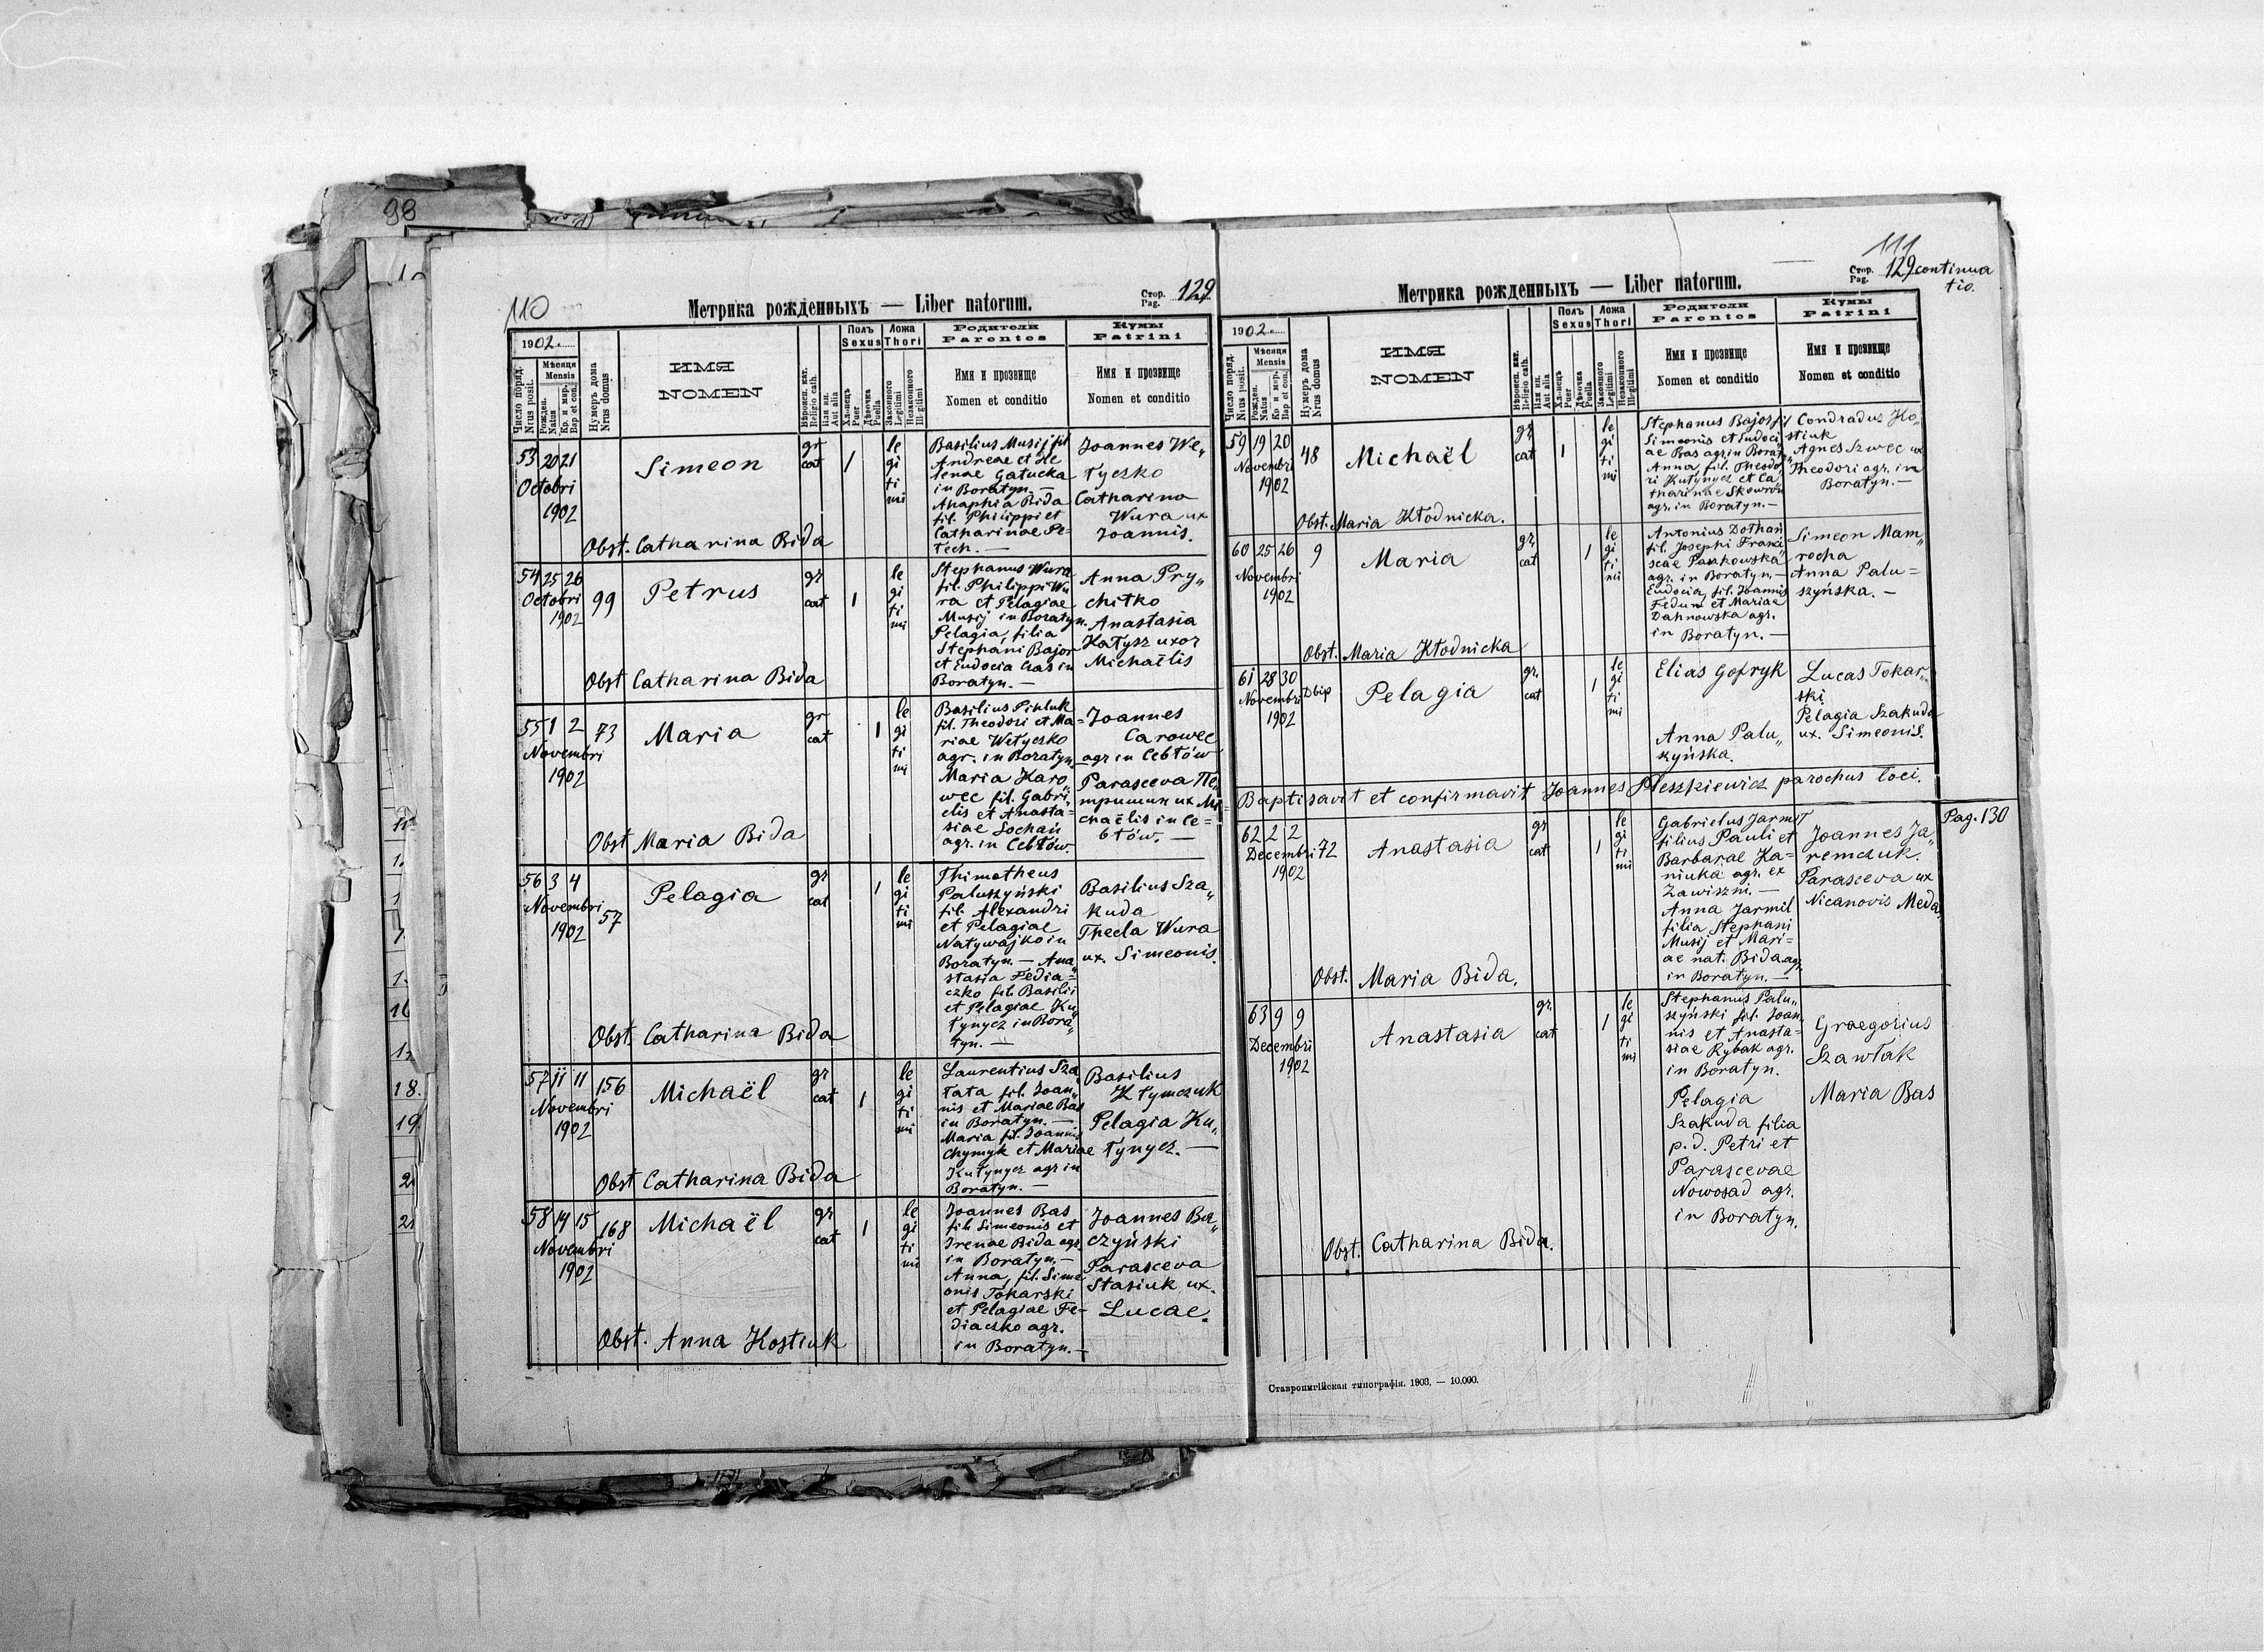 98
110
Метрика рожденныхъ — Liber natorum.
Стор. Pag. 129
1902
Число поряд. Nrus posit.
Мѣсяця Mensis
Рожден. Natus
Кр. и мир. Bap et con.
Нумеръ дома Nrus domus
ИМЯ
NOMEN
Вѣроисп. кат. Religio cath.
Или ин. Aut alia
Полъ Sexus
Хлопецъ Puer
Дѣвочка Puella
Ложа Thori
Законного Legitimi
Незаконного Illegitimi
Родители
Parentes
Имя и прозвище
Nomen et conditio
Кумы
Patrini
Имя и прозвище
Nomen et conditio
53 20 21
Octobri
1902
Simeon
gr
cat
1
le
gi
ti
mi
Basilius Musij fil
Andreae et He
lenae Gałucka
in Boratyn. —
Anaphia Bida
fil. Philippi et
Catharinae Pe-
tech. —
Joannes We„
tyczko
Catharina
Wura ux
Joannis.
Obst. Catharina Bida
54 25 26
Octobri
1902
99
Petrus
gr
cat
1
le
gi
ti
mi
Stephanus Wura
fil. Philippi Wu
ra et Pelagiae
Musij in Boratyn.
Pelagia, filia
Stephani Bajor
et Eudocia Gas in
Boratyn. —
Anna Pry„
chitko
Anastasia
Hatysz uxor
Michaëlis
Obst Catharina Bida
55 1 2
Novembri
1902
73
Maria
gr
cat
1
le
gi
ti
mi
Basilius Pihluk
fil. Theodori et Ma=
riae Wetyczko
agr. in Boratyn
Maria Karo„
wec fil. Gabri„
elis et Anasta-
siae Sochań
agr. in Cebłów.
Joannes
Carowec
agr in Cebłów
Parasceva Пе„
тришин ux Mi
chaëlis in Ce=
błów. —
Obst Maria Bida
56 3 4
Novembri
1902
57
Pelagia
gr
cat
1
le
gi
ti
mi
Thimotheus
Paluszyński
fil. Alexandri
et Pelagiae
Natywajko in
Boratyn. — Ana„
stasia Fedia=
czko fil. Basilii
et Pelagiae Ku„
tynycz in Bora„
tyn. —
Basilius Sza„
kuda
Thecla Wura
ux. Simeonis.
Obst. Catharina Bida
57 11 11
Novembri
1902
156
Michaël
gr
cat
1
le
gi
ti
mi
Laurentius Sza„
tata fil. Joan„
nis et Mariae Bas
in Boratyn. —
Maria fil. Joannis
Chymyk et Mariae
Kutynycz agr in
Boratyn. —
Basilius
Kłymczuk
Pelagia Ku„
tynycz. —
Obst Catharina Bida
58 14 15
Novembri
1902
168
Michaël
gr
cat
1
le
gi
ti
mi
Joannes Bas
fil. Simeonis et
Irenae Bida agr.
in Boratyn. —
Anna, fil. Sime
onis Tokarski
et Pelagiae Fe-
diaczko agr.
in Boratyn. —
Joannes Ba„
czyński
Parasceva
Stasiuk ux.
Lucae.
Obst. Anna Kostiuk
111
Метрика рожденныхъ — Liber natorum.
Стор. Pag. 129 continua
tio.
1902
Число поряд. Nrus posit.
Мѣсяця Mensis
Рожден. Natus
Кр. и мир. Bap et con.
Нумеръ дома Nrus domus
ИМЯ
NOMEN
Вѣроисп. кат. Religio cath.
Или ин. Aut alia
Полъ Sexus
Хлопецъ Puer
Дѣвочка Puella
Ложа Thori
Законного Legitimi
Незаконного Illegitimi
Родители
Parentes
Имя и прозвище
Nomen et conditio
Кумы
Patrini
Имя и прозвище
Nomen et conditio
59 19 20
Novembri
1902
48
Michaël
gr.
cat
1
le
gi
ti
mi
Stephanus Bajor fil
Simeonis et Eudoci
ae Bas agr in Boratyn
Anna, fil. Theodo„
ri Kutynycz et Ca
tharinae Skowron
agr. in Boratyn. —
Condradus Ko„
stiuk
Agnes Szwec ux
Theodori agr. in
Boratyn. —
Obst. Maria Kłodnicka.
60 25 26
Novembri
1902
9
Maria
gr.
cat
1
le
gi
ti
mi
Antonius Dołhań
fil. Josephi Franci„
scae Pankowska
agr. in Boratyn. —
Eudocia, fil. Joannis
Fedun et Mariae
Dahnowska agr.
in Boratyn. —
Simeon Mam„
rocha
Anna Palu=
szyńska. —
Obst. Maria Kłodnicka
61 28 30
Novembri
1902
Двір
Pelagia
gr.
cat
1
le
gi
ti
mi
Elias Gofryk
Anna Palu„
szyńska.
Lucas Tokar„
ski
Pelagia Szakuda
ux. Simeonis.
Baptisavit et confirmavit Joannes Pleszkiewicz parochus loci.
Pag. 130
62 2 2
Decembri
1902
72
Anastasia
gr
cat
1
le
gi
ti
mi
Gabrielus Jarmoł
filius Pauli et
Barbarae Ka=
niuka agr. ex
Zawiszni. —
Anna Jarmił
filia Stephani
Musij et Mari=
ae nat. Bida agr.
in Boratyn. —
Joannes Ja„
remczuk.
Parasceva ux
Nicanovis Meda.
Obst. Maria Bida.
63 9 9
Decembri
1902
Anastasia
gr.
cat
1
le
gi
ti
mi
Stephanus Palu„
szyński fil. Joan„
nis et Anasta=
siae Rybak agr.
in Boratyn.
Pelagia
Szakuda filia
p. d. Petri et
Parascevae
Nowosad agr.
in Boratyn.
Graegorius
Szawłak
Maria Bas
Obst. Catharina Bida.
Ставропигійская типографія. 1903. — 10.000.
18.
19.